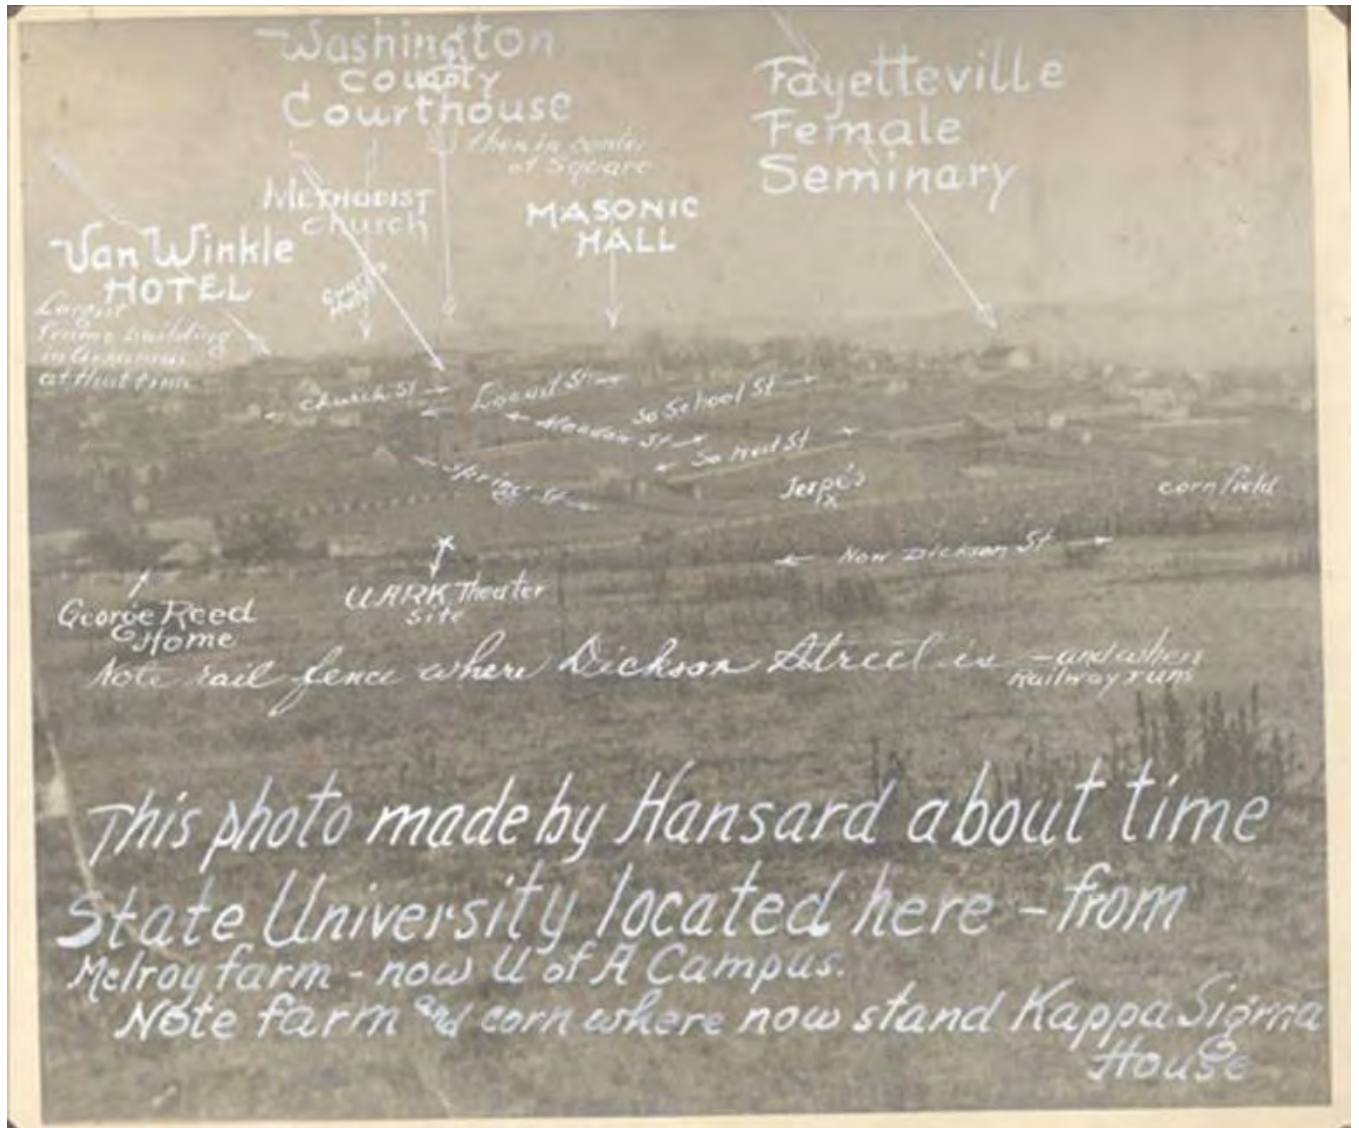 Washington
County
Courthouse
then in center
of Square
Fayetteville
Female
Seminary
METHODIST
Church
MASONIC
HALL
Van Winkle
HOTEL
Largest
frame building
in Arkansas
at that time
Church St
Locust St
So School St
Meadow St
So West St
Spring St
Jerpe's
x
cornfield
Now Dickson St
UARK Theater
Site
George Reed
Home
Note rail fence where Dickson Street is – and where
Railway runs
This photo made by Hansard about time
State University located here – from
McIlroy farm – now U of A Campus.
Note farm and corn where now stand Kappa Sigma
House